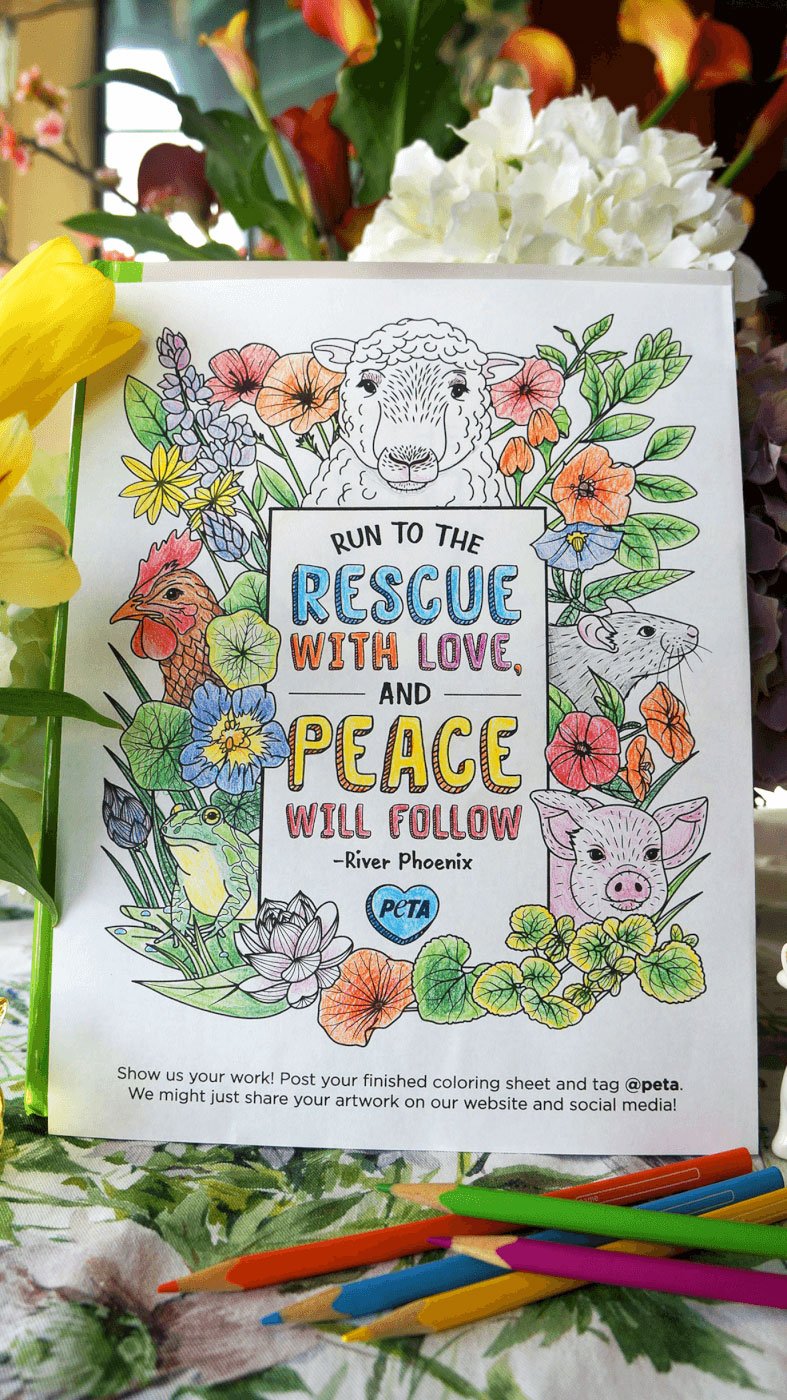 RUN TO THE
RESCUE
WITH LOVE,
AND
PEACE
WILL FOLLOW
–River Phoenix
PETA
Show us your work! Post your finished coloring sheet and tag @peta.
We might just share your artwork on our website and social media!